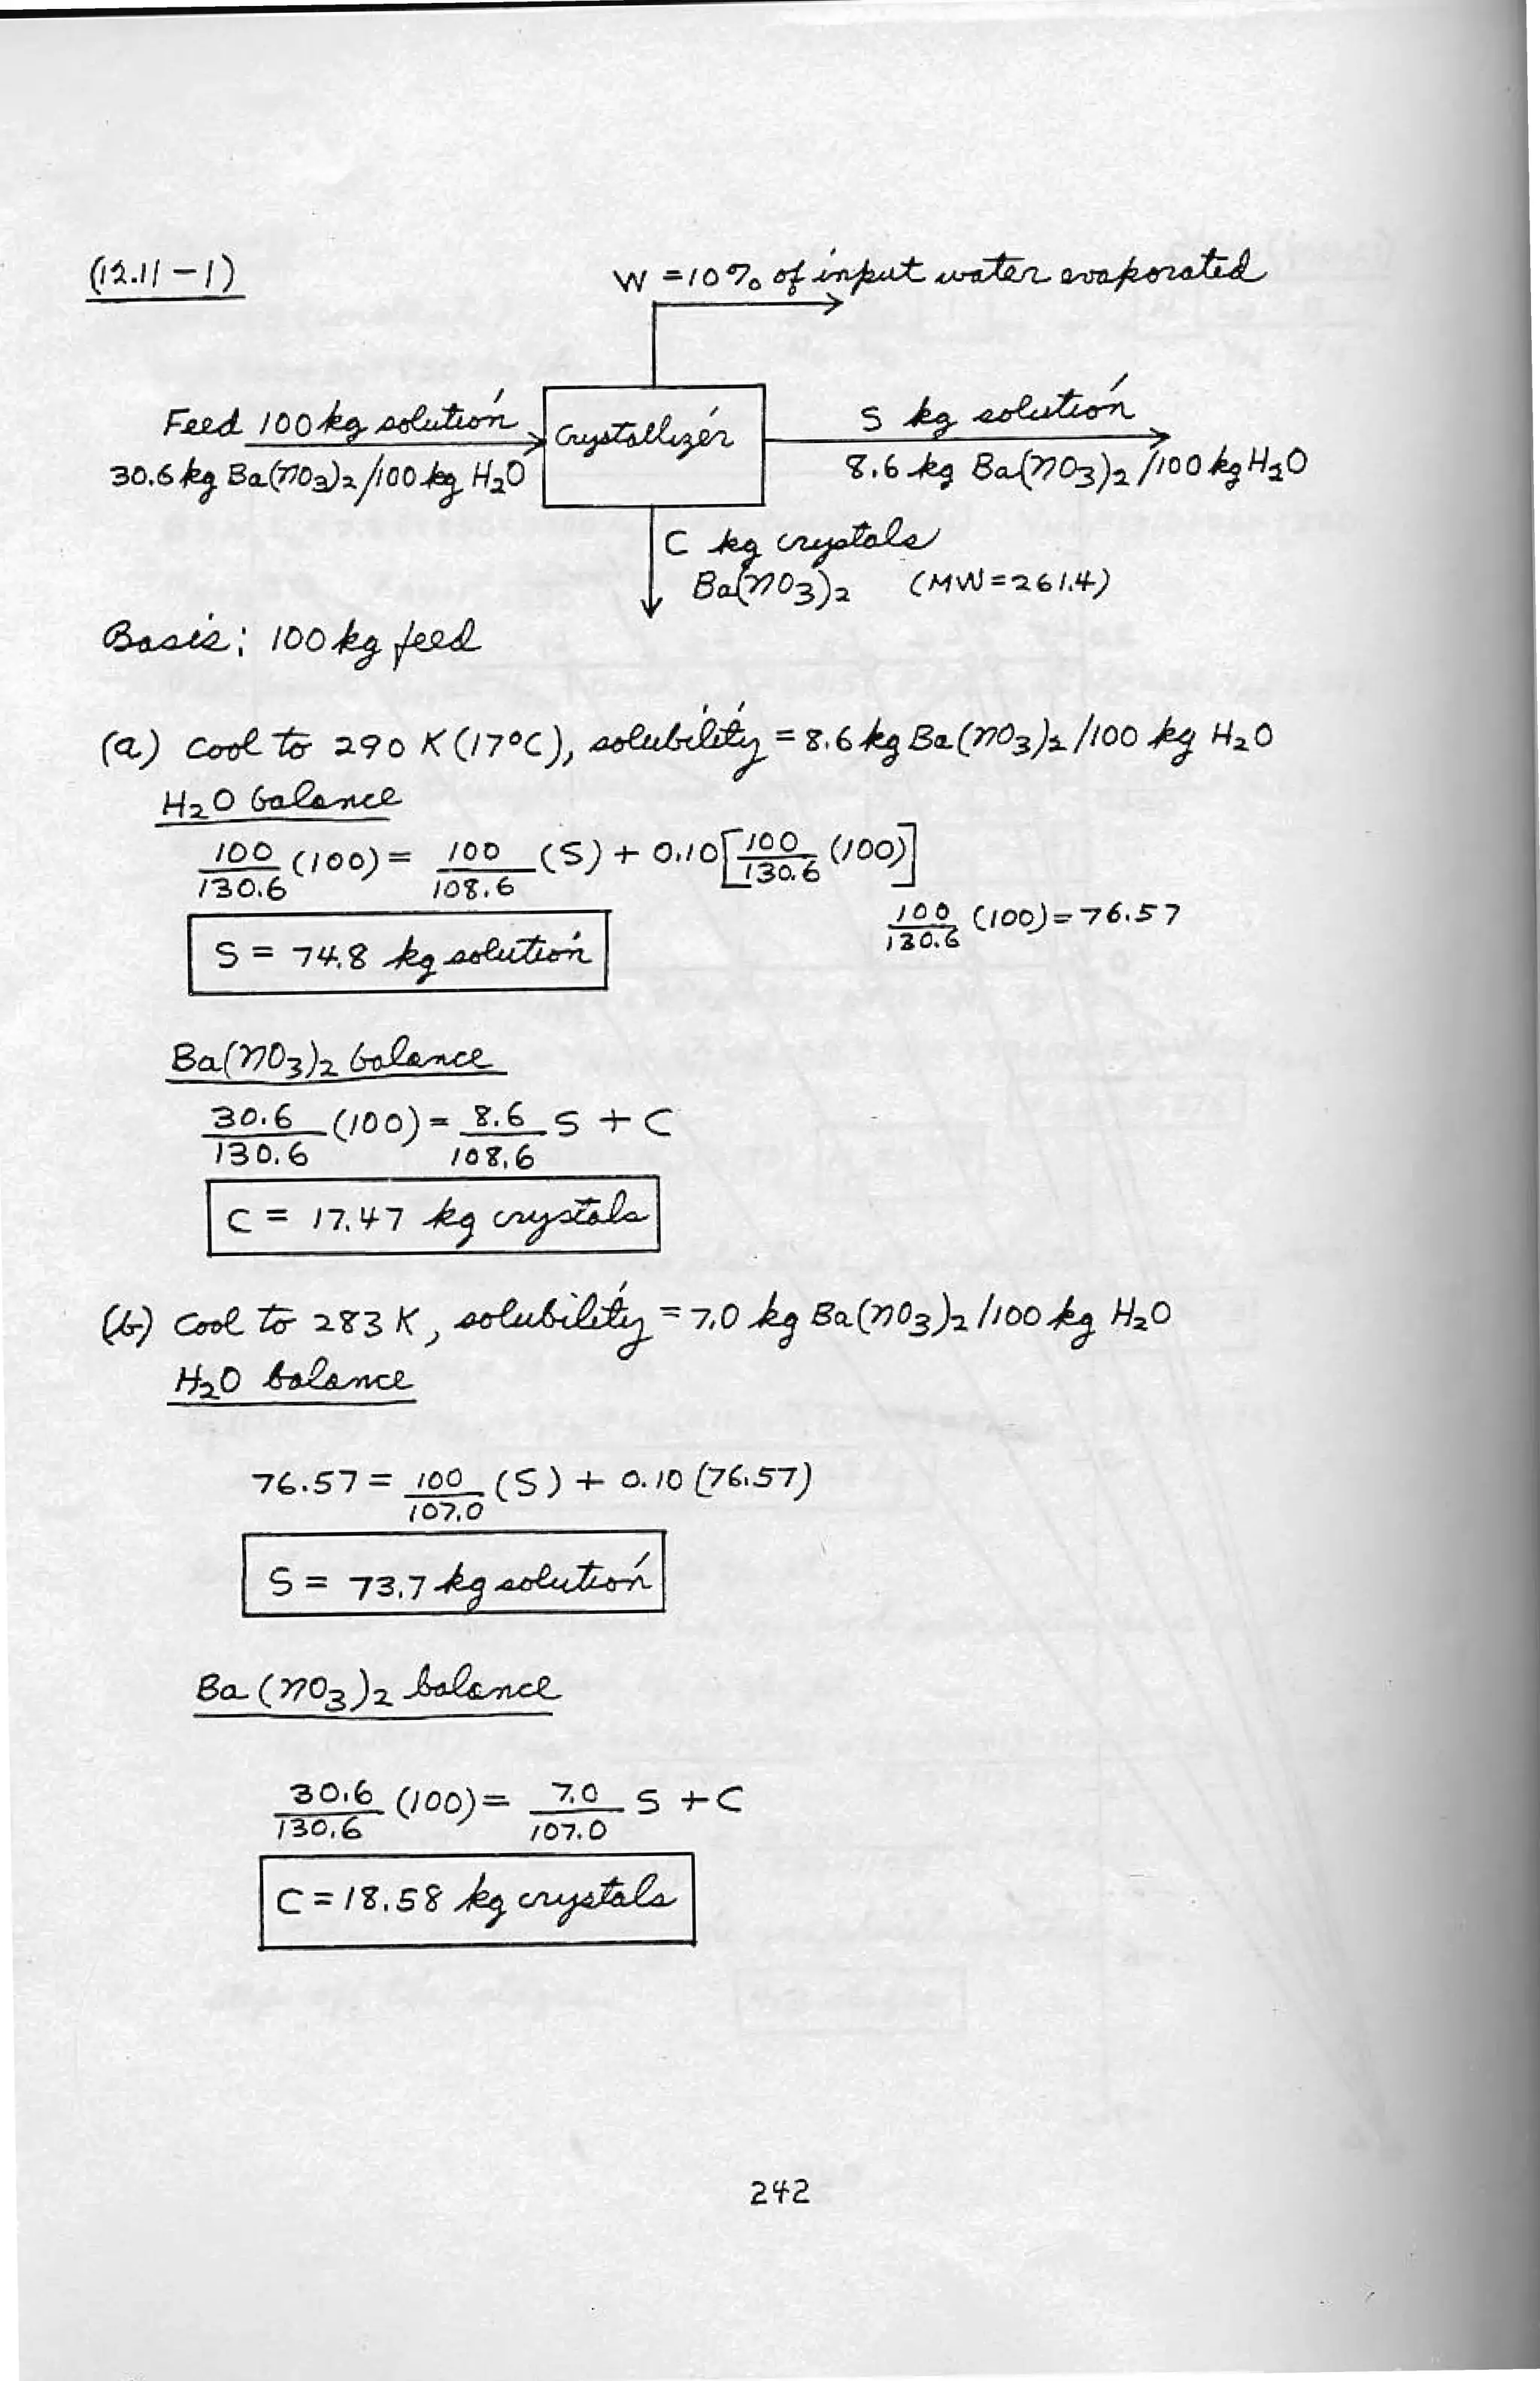 (12.11-1)
W = 10% of input water evaporated
Feed 100 kg solution
30.6 kg Ba(NO3)2/100 kg H2O
Crystallizer
S kg solution
8.6 kg Ba(NO3)2/100 kg H2O
C kg crystals
Ba(NO3)2 (MW=261.4)
Basis: 100 kg feed
(a) Cool to 290 K (17°C), solubility = 8.6 kg Ba(NO3)2/100 kg H2O
H2O balance
100/130.6 (100) = 100/108.6 (S) + 0.10[100/130.6 (100)]
100/130.6 (100) = 76.57
S = 74.8 kg solution
Ba(NO3)2 balance
30.6/130.6 (100) = 8.6/108.6 S + C
C = 17.47 kg crystals
(b) Cool to 283 K, solubility = 7.0 kg Ba(NO3)2/100 kg H2O
H2O balance
76.57 = 100/107.0 (S) + 0.10 (76.57)
S = 73.7 kg solution
Ba(NO3)2 balance
30.6/130.6 (100) = 7.0/107.0 S + C
C = 18.58 kg crystals
242